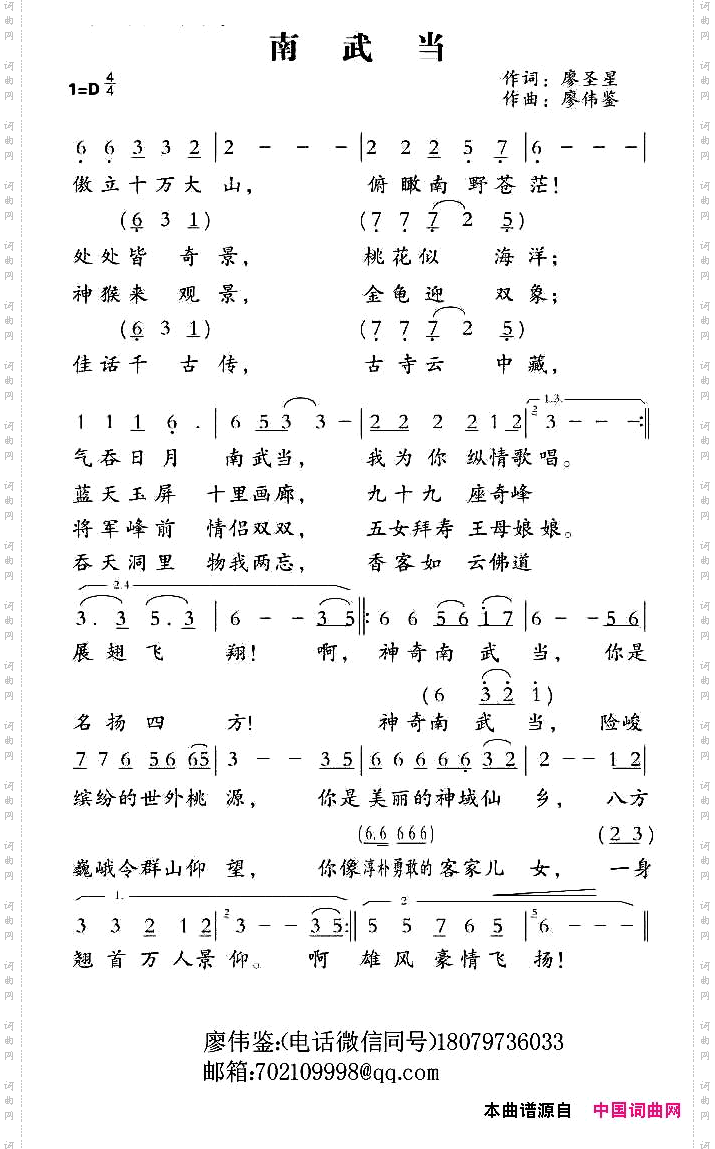 南武当
1=D 4/4
作词：廖圣星
作曲：廖伟鉴
6 6 3 3 2 | 2 - - - | 2 2 2 5 7 | 6 - - - |
傲立十万大山， 俯瞰南野苍茫！
(6 3 1) (7 7 7 2 5)
处处皆 奇景， 桃花似 海洋；
神猴来 观景， 金龟迎 双象；
(6 3 1) (7 7 7 2 5)
佳话千 古传， 古寺云 中藏，
1.3.
1 1 1 6 . | 6 5 3 3 3 - | 2 2 2 2 1 2 | 2 3 - - - :||
气吞日月 南武当， 我为你 纵情歌唱。
蓝天玉屏 十里画廊， 九十九 座奇峰
将军峰前 情侣双双， 五女拜寿 王母娘娘。
吞天洞里 物我两忘， 香客如 云佛道
2.4
3 . 3 5 . 3 | 6 - - 3 5 ||: 6 6 5 6 1 7 | 6 - - 5 6 |
展翅飞 翔！ 啊，神奇南 武 当， 你是
(6 3 2 1)
名扬四 方！ 神奇南 武 当， 险峻
7 7 6 5 6 6 5 | 3 - - 3 5 | 6 6 6 6 6 3 2 | 2 - - 1 2 |
缤纷的世外桃 源， 你是美丽的神域仙 乡， 八方
(6.6 6 6 6) (2 3)
巍峨令群山仰 望， 你像淳朴勇敢的客家儿 女， 一身
1. 2
3 3 2 1 2 | 2 3 - - 3 5 :|| 5 5 7 6 5 | 5 6 - - - |
翘首万人景仰。 啊 雄风 豪情飞 扬！
廖伟鉴:(电话微信同号)18079736033
邮箱:702109998@qq.com
本曲谱源自 中国词曲网